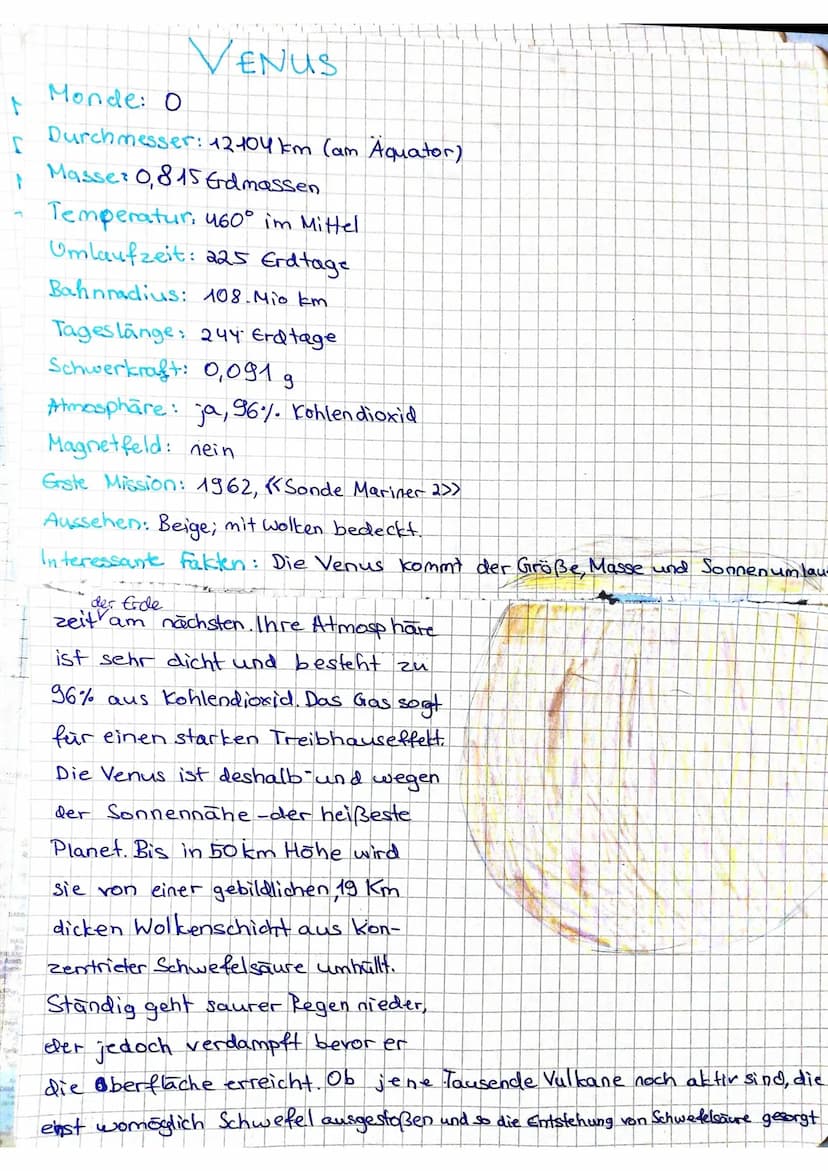 VENUS
Monde: 0
Durchmesser: 12104 km (am Äquator)
Masse: 0,815 Erdmassen
Temperatur: 460° im Mittel
Umlaufzeit: 225 Erdtage
Bahnradius: 108 Mio km
Tageslänge: 244 Erdtage
Schwerkraft: 0,091 g
Atmosphäre: ja, 96% Kohlendioxid
Magnetfeld: nein
Erste Mission: 1962, «Sonde Mariner 2»
Aussehen: Beige; mit Wolken bedeckt.
Interessante Fakten: Die Venus kommt der Größe, Masse und Sonnenumlau
der Erde
zeit am nächsten. Ihre Atmosphäre
ist sehr dicht und besteht zu
96% aus Kohlendioxid. Das Gas sogt
für einen starken Treibhauseffekt.
Die Venus ist deshalb - und wegen
der Sonnennähe - der heißeste
Planet. Bis in 50 km Höhe wird
sie von einer gebildlichen, 19 Km
dicken Wolkenschicht aus Kon-
zentrieter Schwefelsäure umhüllt.
Ständig geht saurer Regen nieder,
der jedoch verdampft bevor er
die Oberfläche erreicht. Ob jene Tausende Vulkane noch aktiv sind, die
einst womöglich Schwefel ausgestoßen und so die Entstehung von Schwefelsäure gesorgt